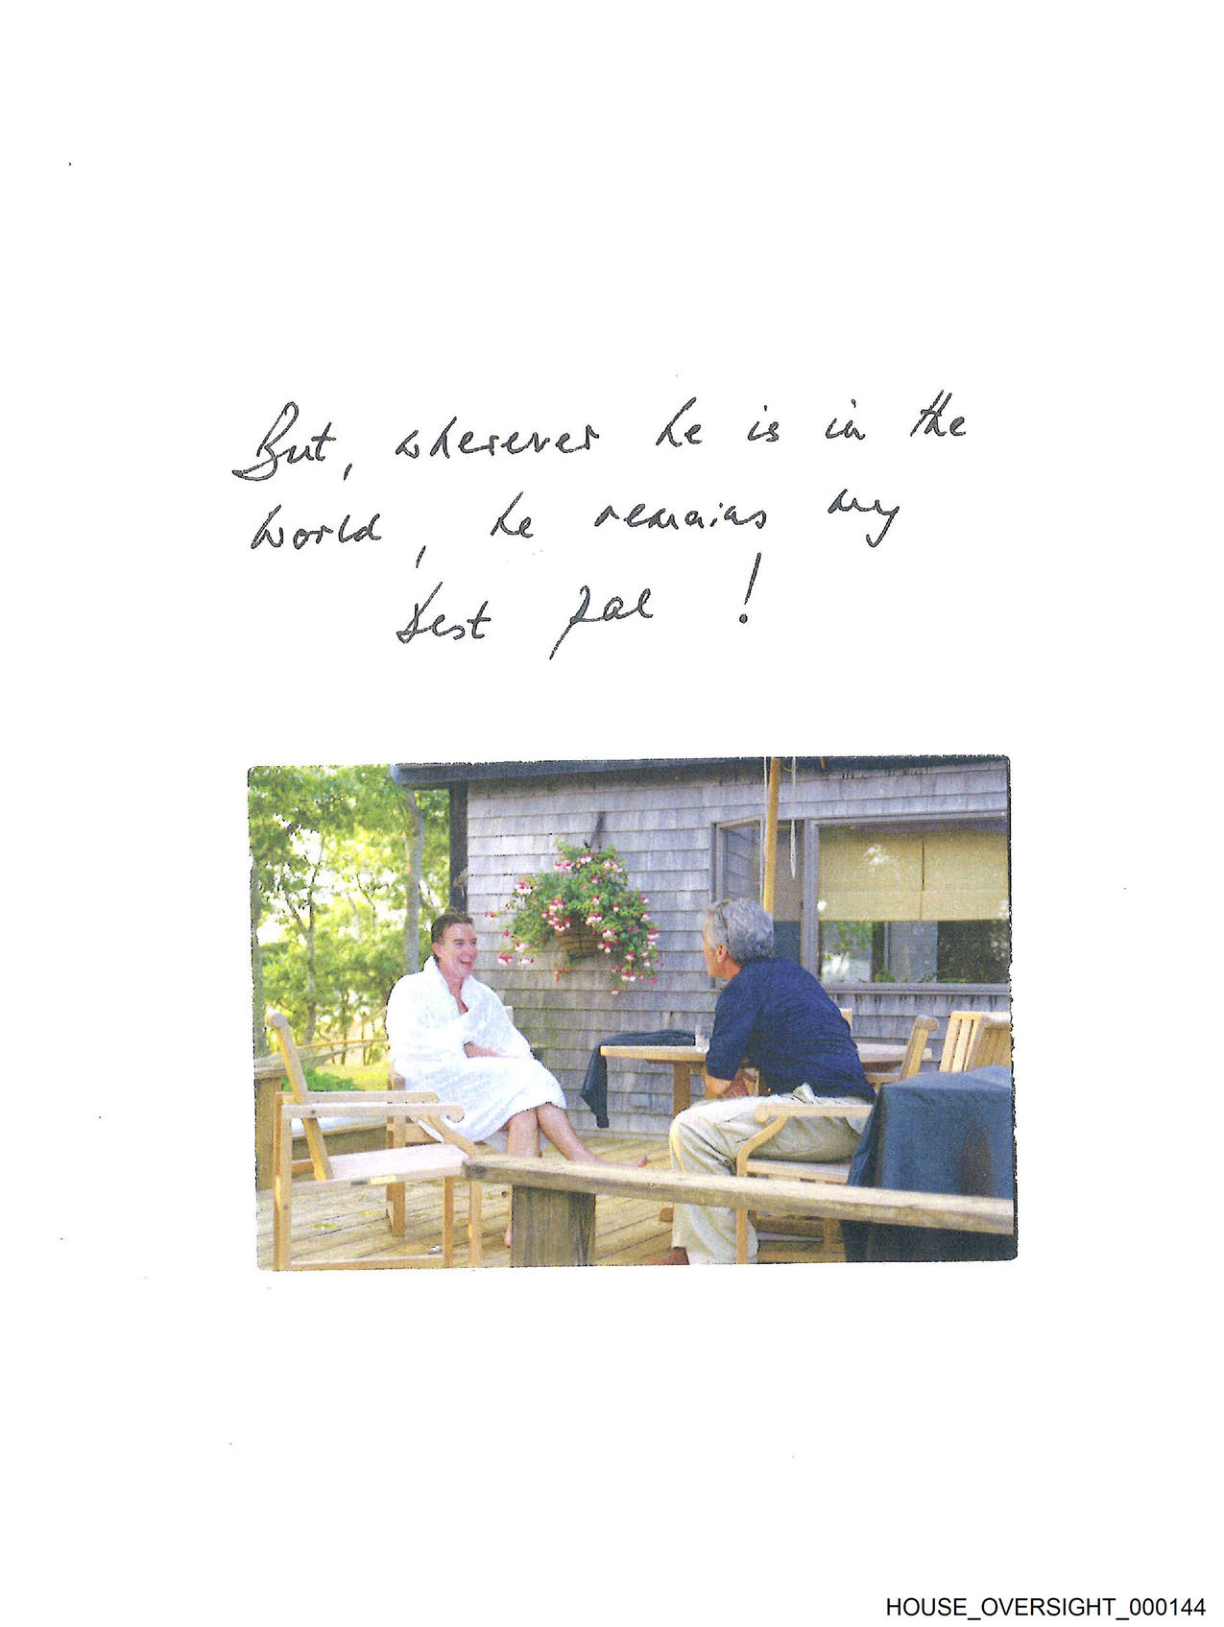 But, wherever he is in the
world, he remains my
best pal !
HOUSE_OVERSIGHT_000144